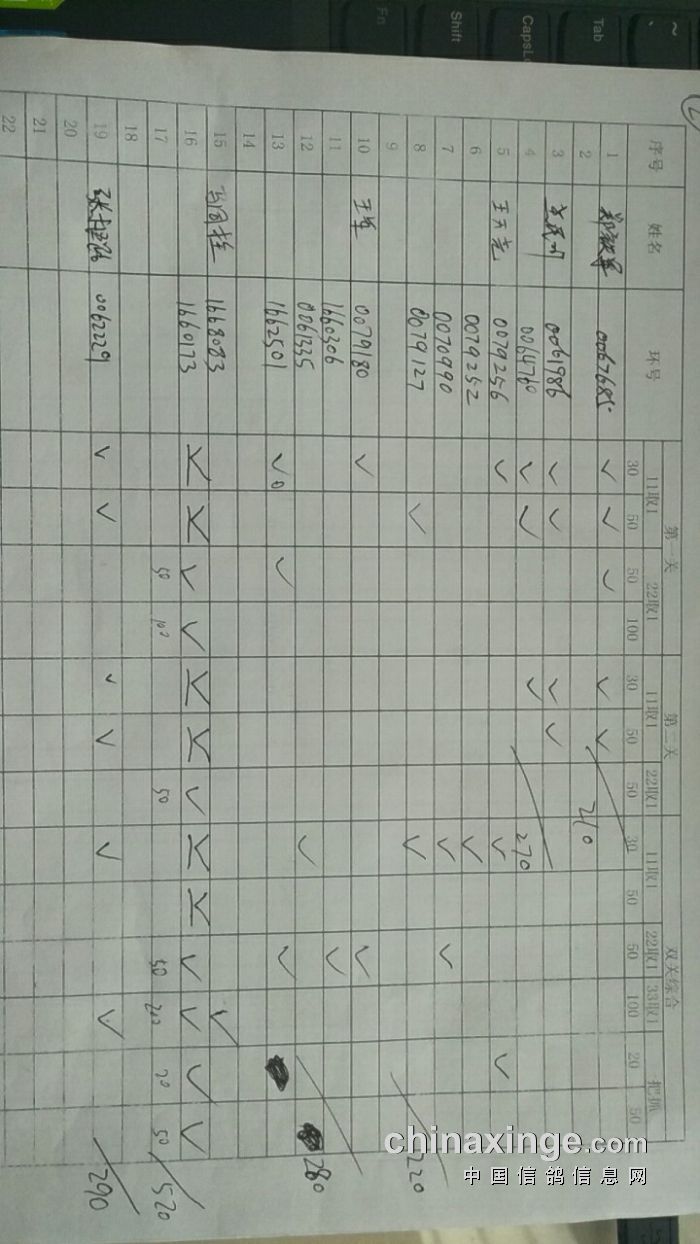 ~
Tab
CapsL
Shift
Fn
序号 姓名 环号 第一关 第二关 双关综合
11取1 22取1 11取1 22取1 11取1 22取1 33取1 把抓
30 50 50 100 30 50 50 30 50 50 100 20 50
1 0067685
2 210
3 0061986
4 0064760 270
5 王天亮 0079256
6 0079252
7 0070990
8 0079127 220
9
10 0079180
11 1660306
12 0061335 280
13 1662501
14
15 1668083
16 1660173
17 50 100 50 50 200 20 50 520
18
19 0062229 290
20
21
22
chinaxinge.com
中国信鸽信息网